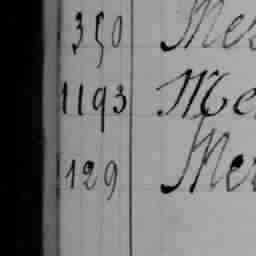 350 Mes
1193 Me
129 Mer